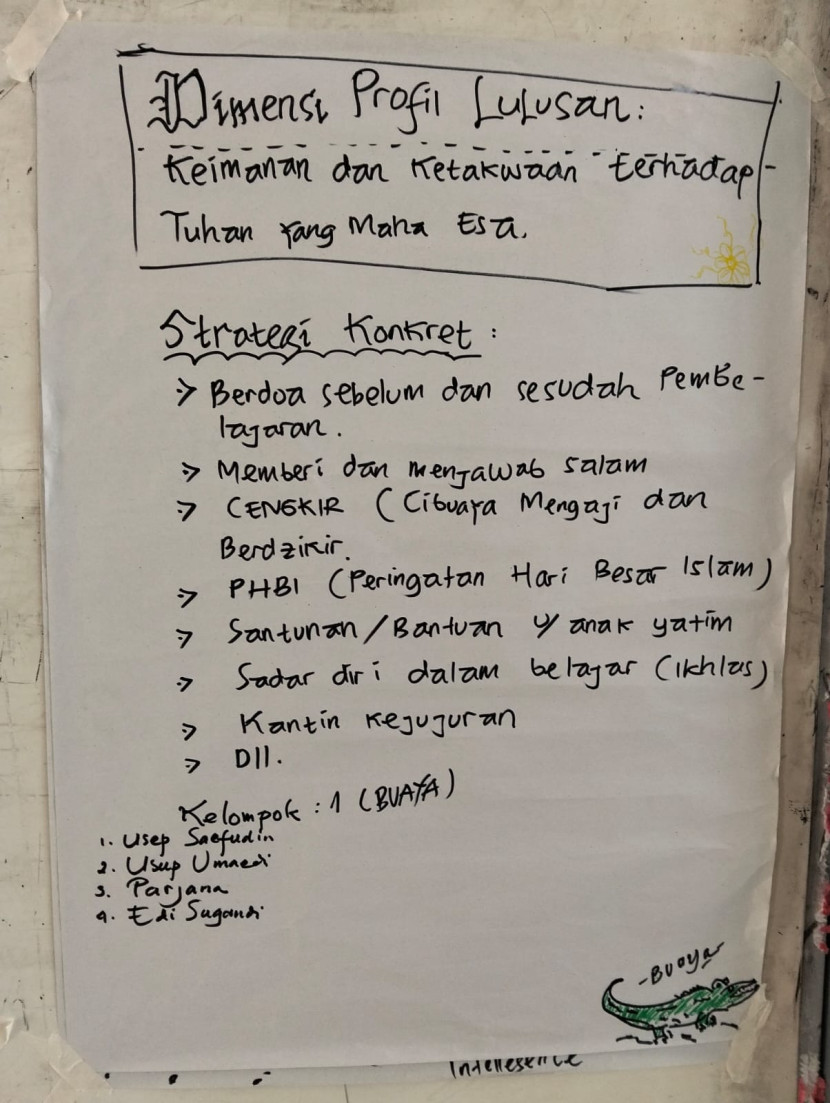 Dimensi Profil Lulusan:
Keimanan dan Ketakwaan terhadap
Tuhan Yang Maha Esa.
Strategi Konkret :
Berdoa sebelum dan sesudah Pembe-
lajaran.
Memberi dan menjawab salam
CENGKIR (Cibuaya Mengaji dan
Berdzikir.
PHBI (Peringatan Hari Besar Islam)
Santunan/Bantuan U/ anak yatim
Sadar diri dalam belajar (Ikhlas)
Kantin Kejujuran
Dll.
Kelompok : 1 (BUAYA)
1. Usep Saefudin
2. Usup Umaedi
3. Parjana
4. Edi Sugandi
-Buaya-